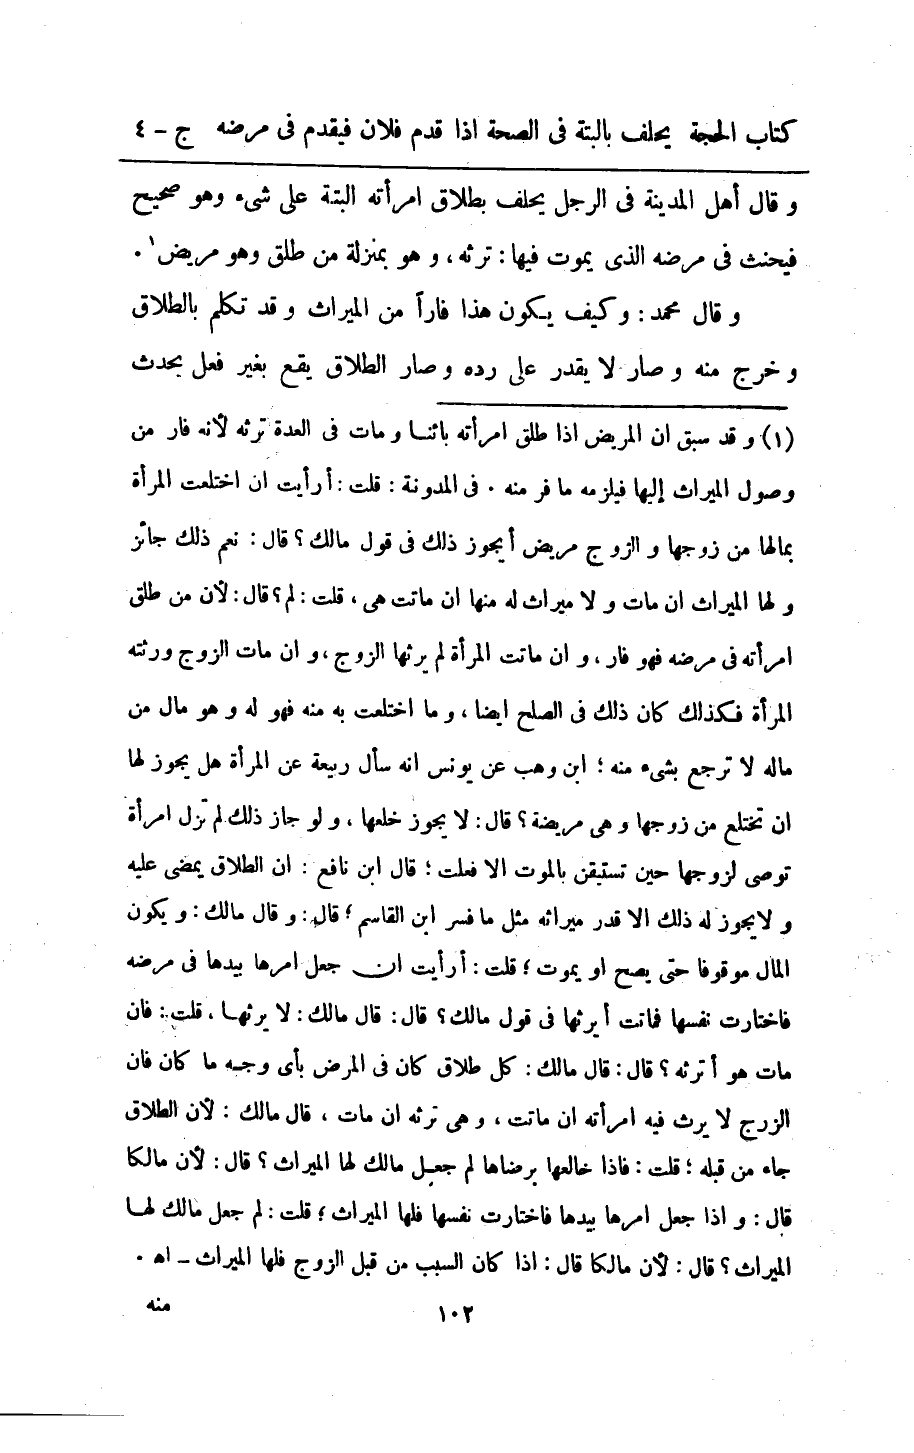 كتاب الحجة يحلف بالبتة فى الصحة اذا قدم فلان فيقدم فى مرضه ج - ٤
و قال أهل المدينة فى الرجل يحلف بطلاق امرأته البتة على شىء وهو صحيح
فيحنث فى مرضه الذى يموت فيها: ترثه، و هو بمنزلة من طلق وهو مريض١ .
و قال محمد: و كيف يكون هذا فاراً من الميراث و قد تكلم بالطلاق
و خرج منه و صار لا يقدر على رده و صار الطلاق يقع بغير فعل يحدث
(١) و قد سبق ان المريض اذا طلق امرأته بائنا و مات فى العدة ترثه لأنه فار من
وصول الميراث إليها فيلزمه ما فر منه . فى المدونة: قلت: أرأيت ان اختلعت المرأة
بمالها من زوجها و الزوج مريض أيجوز ذلك فى قول مالك؟ قال: نعم ذلك جائز
و لها الميراث ان مات و لا ميراث له منها ان ماتت هى، قلت: لم؟ قال: لأن من طلق
امرأته فى مرضه فهو فار، و ان ماتت المرأة لم يرثها الزوج، و ان مات الزوج ورثته
المرأة فكذلك كان ذلك فى الصلح ايضا، و ما اختلعت به منه فهو له و هو مال من
ماله لا ترجع بشىء منه؛ ابن وهب عن يونس انه سأل ربيعة عن المرأة هل يجوز لها
ان تختلع من زوجها و هى مريضة؟ قال: لا يجوز خلعها، و لو جاز ذلك لم تزل امرأة
توصى لزوجها حين تستيقن بالموت الا فعلت؛ قال ابن نافع: ان الطلاق يمضى عليه
و لايجوز له ذلك الا قدر ميراثه مثل ما فسر ابن القاسم؛ قال: و قال مالك: و يكون
المال موقوفا حتى يصح او يموت؛ قلت: أرأيت ان جعل امرها بيدها فى مرضه
فاختارت نفسها فماتت أيرثها فى قول مالك؟ قال: قال مالك: لا يرثها، قلت: فان
مات هو أترثه؟ قال: قال مالك: كل طلاق كان فى المرض بأى وجه ما كان فان
الزرج لا يرث فيه امرأته ان ماتت، و هى ترثه ان مات، قال مالك: لأن الطلاق
جاء من قبله؛ قلت: فاذا خالعها برضاها لم جعل مالك لها الميراث؟ قال: لأن مالكا
قال: و اذا جعل امرها بيدها فاختارت نفسها فلها الميراث؛ قلت: لم جعل مالك لها
الميراث؟ قال: لأن مالكا قال: اذا كان السبب من قبل الزوج فلها الميراث - اه .
منه
١٠٢